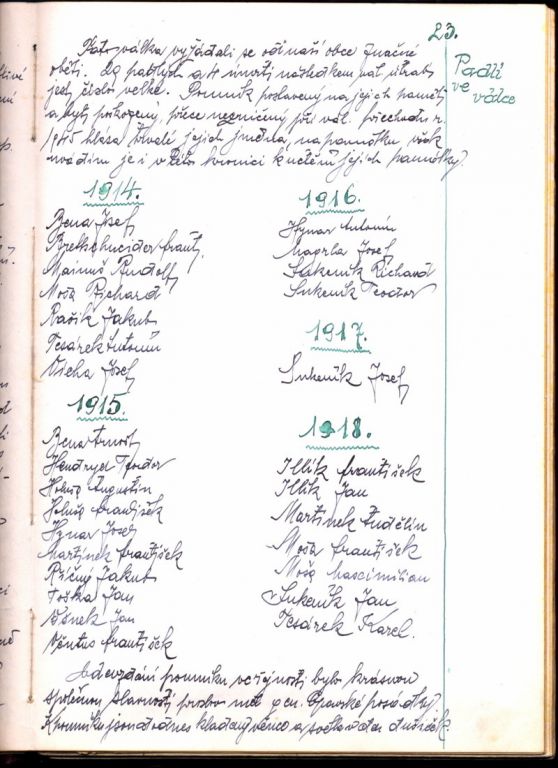 23.
Padlí
ve
válce
Tato válka vyžádali se od naší obce značné
oběti. 29 padlých a 4 mrtví následkem vál. útrap
jest číslo velké. Pomník postavený na jejich paměť
a byť poškozený, přece nezničený při vál. přechodu r.
1945 hlásá trvale jejich jména, na památku však
uvádím je i v této kronice k uctění jejich památky.
1914.
Bena Josef
Bretschneider Frant.
Mairuš Rudolf
Moša Richard
Rašík Jakub
Tesárek Antonín
Vicha Josef
1915.
Bena Arnošt
Hendrych Teodor
Holuša Augustin
Holuša František
Hynar Josef
Martinek František
Říčný Jakub
Toška Jan
Všnek Jan
Věntus František
1916.
Hynar Antonín
Magrla Josef
Sukeník Richard
Sukeník Teodor
1917.
Sukeník Josef
1918.
Illík František
Illík Jan
Martinek Eudelin
Moša František
Moša Maxcimilian
Sukeník Jan
Tesárek Karel.
Odevzdání pomníku veřejnosti bylo krásnou
společnou slavností
Opavské posádky.
K pomníku jsou dodnes kladeny věnce a světla v den dušiček.